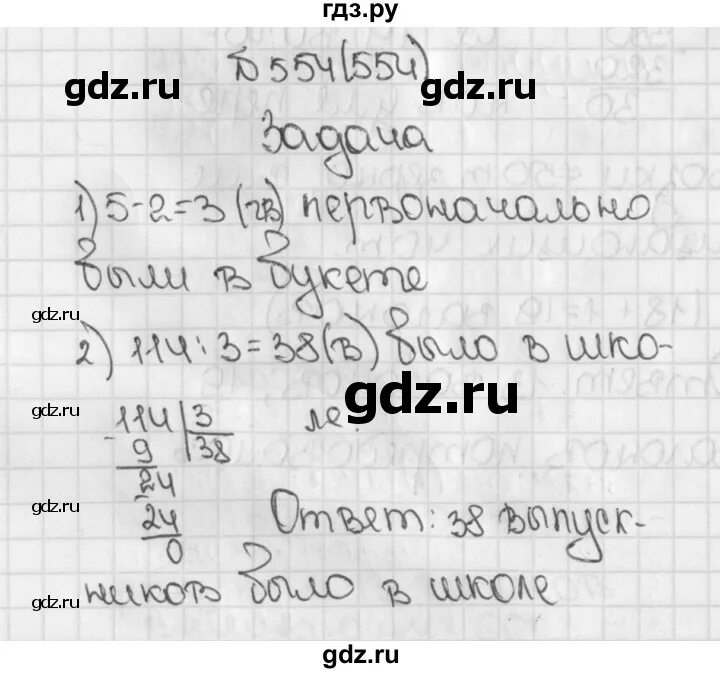 гдз.ру
№554(554)
gdz.ru gdz.ru
Задача
1) 5-2=3 (цв) первоначально
gdz.ru gdz.ru
были в букете
gdz.ru
2) 114:3=38(в) было в шко-
gdz.ru
gdz.ru
114 3 ле.
- 9 38
24
24
0
gdz.ru
Ответ: 38 выпуск-
gdz.ru
ников было в школе
gdz.ru